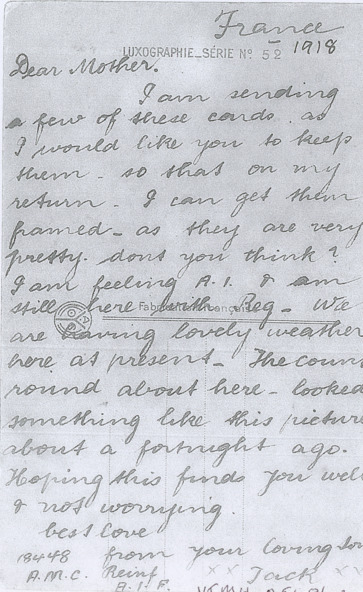 France
LUXOGRAPHIE_SÉRIE Nº 52 1918
Dear Mother.
I am sending
a few of these cards. as
I would like you to keep
them - so that on my
return - I can get them
framed - as they are very
pretty. dont you think?
I am feeling A.1. & am
still here with Reg - We
Fabrication Française
are having lovely weather
here at present - The coun
round about here - looked
something like this picture
about a fortnight ago.
Hoping this finds you well
& not worrying.
best love
from your loving son
18448
Jack
A.M.C. Reinf
A.I.F.